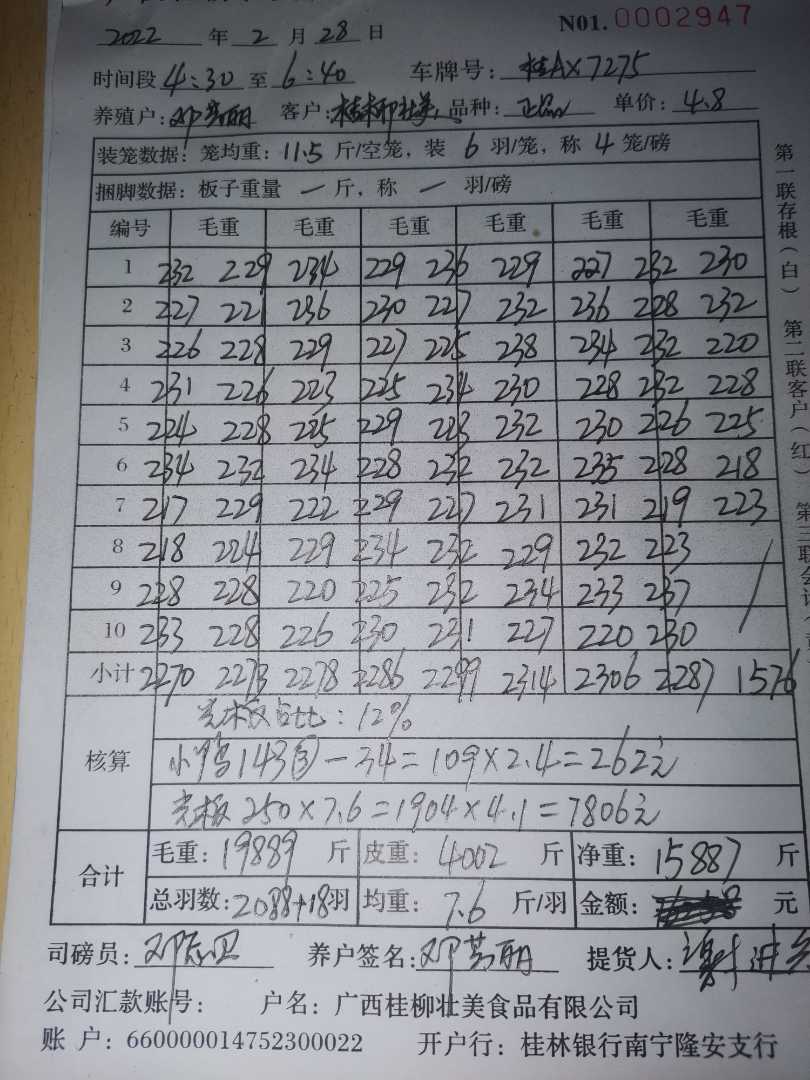 N01. 0002947
2022 年 2 月 28 日
时间段 4:30 至 6:40 车牌号: 桂AX7275
养殖户: 邓 丽 客户: 桂柳壮美 品种: 正品 单价: 4.8
装笼数据: 笼均重: 11.5 斤/空笼, 装 6 羽/笼, 称 4 笼/磅
捆脚数据: 板子重量 一 斤, 称 一 羽/磅
编号 毛重 毛重 毛重 毛重 毛重 毛重
1 232 229 234 229 236 229 227 232 230
2 227 221 236 230 227 232 236 228 232
3 226 228 229 227 225 238 234 232 220
4 231 226 223 225 234 230 228 232 228
5 224 228 225 229 223 232 230 226 225
6 234 232 234 228 232 232 235 228 218
7 217 229 222 229 227 231 231 219 223
8 218 224 229 234 232 229 232 223
9 228 228 220 225 232 234 233 237
10 233 228 226 230 231 227 220 230
小计 2270 2273 2278 2286 2299 2314 2306 2287 1576
核算
占比: 12%
小鸭143 - 34 = 109 × 2.4 = 262元
250 × 7.6 = 1904 × 4.1 = 7806元
合计
毛重: 19889 斤 皮重: 4002 斤 净重: 15887 斤
总羽数: 2088+18羽 均重: 7.6 斤/羽 金额: 元
司磅员: 邓 卫 养户签名: 邓 丽 提货人: 谢进
公司汇款账号: 户名: 广西桂柳壮美食品有限公司
账 户: 660000014752300022 开户行: 桂林银行南宁隆安支行
第一联存根(白) 第二联客户(红) 第三联会计